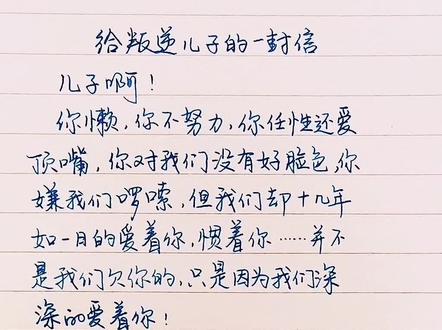 给叛逆儿子的一封信
儿子啊！
你懒，你不努力，你任性还爱
顶嘴，你对我们没有好脸色，你
嫌我们啰嗦，但我们却十几年
如一日的爱着你，惯着你……并不
是我们欠你的，只是因为我们深
深的爱着你！